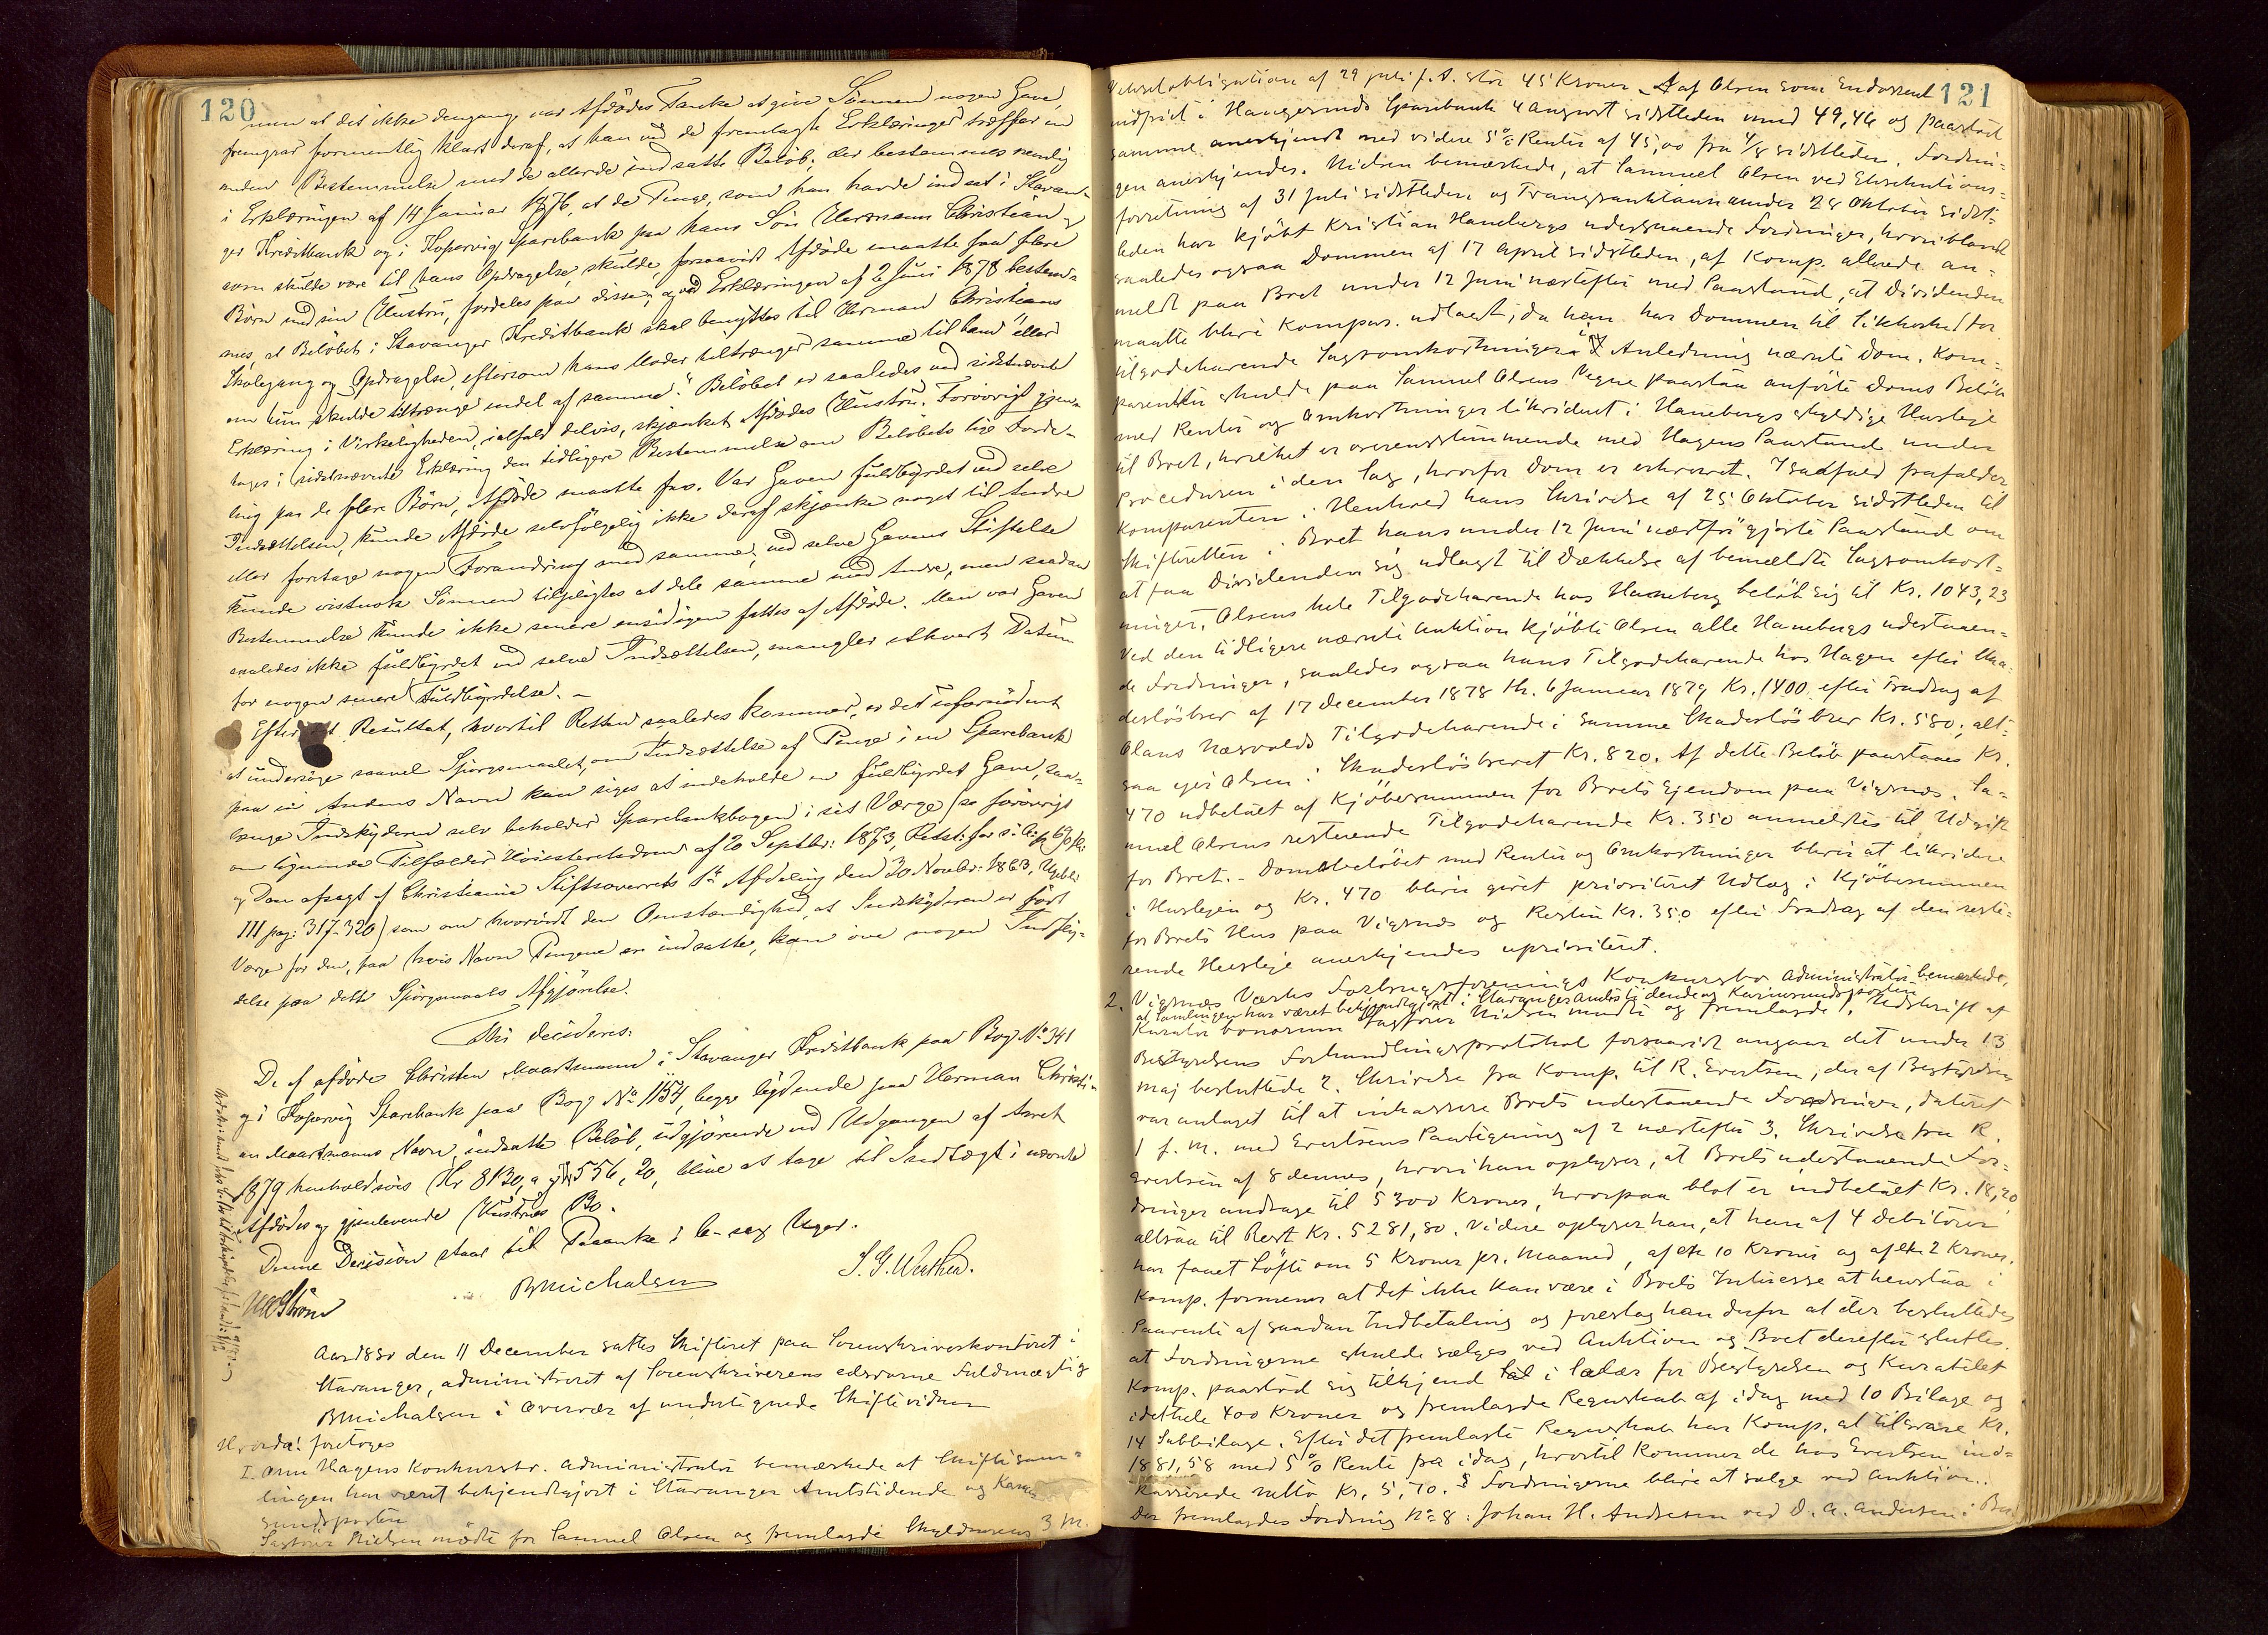 120
men at det ikke dengang var Afdødes Tanke at give Sønnen nogen Gave,
fremgaar formentlig klart deraf, at han ved de fremlagte Erklæringer træffer en
anden Bestemmelse med de allerede indsatte Beløb; der bestemmes nemlig
i Erklæringen af 14 Januar 1876, at de Penge, som han havde indsat i Stavan-
ger Kreditbank og i Kopervig Sparebank paa hans Søn Hermann Christian
som skulde være til hans Opdragelse, skulde, forsaavidt Afdøde maatte faa flere
Børn med sin Hustru, fordeles paa disse, og ved Erklæringen af 2 Juni 1878 bestem-
mes, at Beløbet i Stavanger Kreditbank skal benyttes til Herman Christians
Skolegang og Opdragelse, eftersom hans Moder tiltrænger samme til ham "eller
om hun skulde tiltrænge endel af samme". Beløbet er saaledes ved sidstnævnte
Erklæring i Virkeligheden, ialfald delvis, skjænket Afdødes Hustru. Forøvrigt gjen-
tages i sidstnævnte Erklæring den tidligere Bestemmelse om Beløbets lige Forde-
ling paa de flere Børn, Afdøde maatte faa. Var Gaven fuldbyrdet ved selve
Indsættelsen, kunde Afdøde selvfølgelig ikke deraf skjænke noget til Andre
eller foretage nogen Forandring med samme; ved selve Gavens Stiftelse
kunde vistnok Sønnen tilpligtes at dele samme med Andre, men saadan
Bestemmelse kunde ikke senere ensidigen fattes af Afdøde. Men var Gaven
saaledes ikke fuldbyrdet ved selve Indsættelsen, mangler ethvert Datum
for nogen senere Fuldbyrdelse. –
Efter det Resultat, hvortil Retten saaledes kommer, er det ufornødent
at undersøge saavel Spørgsmaalet, om Indsættelse af Penge i en Sparebank
paa en Andens Navn kan siges at indeholde en fuldbyrdet Gave, saa-
længe Indskyderen selv beholder Sparebankbogen i sit Værge (se forøvrigt
om lignende Tilfælder Høiesteretsdom af 20 Septbr: 1873, Retst: for s: A:
og Dom afsagt af Christiania Stiftsoverrets 1ste Afdeling den 30 Novbr: 1863, Ugebl:
III pag: 317-320) som om hvorvidt den Omstændighed, at Indskyderen er født
Værge for den, paa hvis Navn Pengene er indsatte, kan øve nogen Indfly-
delse paa dette Spørgsmaals Afgjørelse.
Thi decideres:
De af afdøde Christen Maartmann i Stavanger Kreditbank paa Bog No 341
og i Kopervig Sparebank paa Bog No 1154, begge lydende paa Herman Christi-
an Maartmanns Navn indsatte Beløb, udgjørende ved Udgangen af Aaret
1879 henholdsvis Kr 8130, og Kr 556,20, blive at tage til Indtægt i nævnte
Afdødes og gjenlevende Hustrues Bo.
Denne Decision staar til Paaanke i 6-sex Uger.
BMichalsen S. G. Wæthen.
Aar 1880 den 11 December sattes Skifteret paa Sorenskriverkontoret i
Stavanger, administreret af Sorenskriverens edsvorne Fuldmægtig
BMichalsen i Overvær af undertegnede Skiftevidner
Hvorda: foretoges
I. Arne Hagens Konkursbo. Administrator bemærkede at Skiftesam-
lingen har været bekjendtgjort i Stavanger Amtstidende og Karm-
sundsposten
Sagfører Nielsen mødte for Samuel Olsen og fremlagde Skyldnerens 3 M.
121
Vexelobligation af 29 juli f. A. stor 45 Kroner af Olsen som Endossent
indfriet i Haugesunds Sparebank 4 August sidstleden med 49,46 og paastod
samme anerkjendt med videre 5% Renter af 45,00 fra 4/8 sidstleden. Fordrin-
gen anerkjendes. Nielsen bemærkede, at Samuel Olsen ved Exekutions-
forretning af 31 juli sidstleden og Tvangsauktion under 28 Oktober sidst-
leden har kjøbt Kristian Hanebergs udestaaende Fordringer, hvoriblandt
saaledes ogsaa Dommen af 17 April sidstleden, af Komp. allerede an-
meldt paa Boet under 12 Juni næstefter med Paastand, at Dividenden
maatte blive Kompar. udlagt, da han har Dommen til Sikkerhed for
tilgodehavende Sagsomkostninger i Anledning nævnte Dom. Kom-
parenten skulde paa Samuel Olsens Vegne paastaa anførte Doms Beløb
med Renter og Omkostninger likvideret i Hanebergs skyldige Husleje
til Boet, hvilket er overensstemmende med Hagens Paastand under
Proceduren i den Sag, hvorfor Dom er erhvervet. I saafald frafalder
Komparenten i Henhold hans Skrivelse af 25 Oktober sidstleden til
Skifteretten i Boet hans under 12 Juni næstfør gjorte Paastand om
at faa Dividenden sig udlagt til Dækkelse af bemeldte Sagsomkost-
ninger. Olsens hele Tilgodehavende hos Haneberg beløb sig til Kr. 1043,23
Ved den tidligere nævnte Auktion kjøbte Olsen alle Hanebergs udestaaen-
de Fordringer, saaledes ogsaa hans Tilgodehavende hos Hagen efter Ska-
desløsbrev af 17 December 1878 th. 6 Januar 1879 Kr. 1400 efter Fradrag af
Olaus Næsvolds Tilgodehavende i samme Skadesløsbrev Kr. 580; alt-
saa ejer Olsen i Skadesløsbrevet Kr. 820. Af dette Beløb paastaaes Kr.
470 udbetalt af Kjøbesummen for Boets Ejendom paa Vigsnæs. Sa-
muel Olsens resterende Tilgodehavende Kr. 350 anmeldtes til Udgift
for Boet. - Domsbeløbet med Renter og Omkostninger bliver at likvidere
i Huslejen og Kr. 470 bliver givet prioriteret Udlæg i Kjøbesummen
for Boets Hus paa Vigsnæs og Resten Kr. 350 efter Fradrag af den reste-
rende Husleje anerkjendes uprioriteret.
2. Vigsnæs Værks Forbrugsforenings Konkursbo Administrator bemærkede,
at Samlingen har været bekjendtgjort i Stavanger Amtstidende og Karmsundsposten
Kurator bonorum Sagfører Nielsen mødte og fremlagde 1. Udskrift af
Bestyrelsens Forhandlingsprotokol forsaavidt angaar det under 13
Maj besluttede 2. Skrivelse fra Komp. til R. Evertsen, der af Bestyrelsen
var antaget til at inkassere Boets udestaaende Fordringer, dateret
1 f. M. med Evertsens Paategning af 2 næstefter 3. Skrivelse fra R.
Evertsen af 8 dennes, hvori han oplyser, at Boets udestaaende For-
dringer andrage til 5300 Kroner, hvorpaa blot er indbetalt Kr. 18,20
altsaa til Rest Kr. 5281,80. Videre oplyser han, at han af 4 Debitorer
har faaet Løfte om 5 Kroner pr. Maaned, af en 10 Kroner og af en 2 Kroner.
Komp. formener at det ikke kan være i Boets Interesse at henstaa i
Paavente af saadan Indbetaling og foreslog han derfor at der besluttedes
at Fordringerne skulde sælges ved Auktion og Boet derefter sluttes.
Komp. paastod sig tilkjend i Salær for Bestyrelsen og Kuratelet
idethele 400 Kroner og fremlagde Regnskab af idag med 10 Bilage og
14 Subbilage. Efter det fremlagte Regnskab har Komp. at tilsvare Kr.
1881,58 med 5% Rente fra idag, hvortil kommer de hos Evertsen ind-
kasserede netto Kr. 5,70. § Fordringerne blive at sælge ved Auktion.
Der fremlagdes Fordring No 8: Johan H. Andresen ved D. A. Andersen i